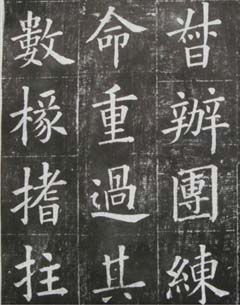 督辦團練
命重過其
數椽搘拄